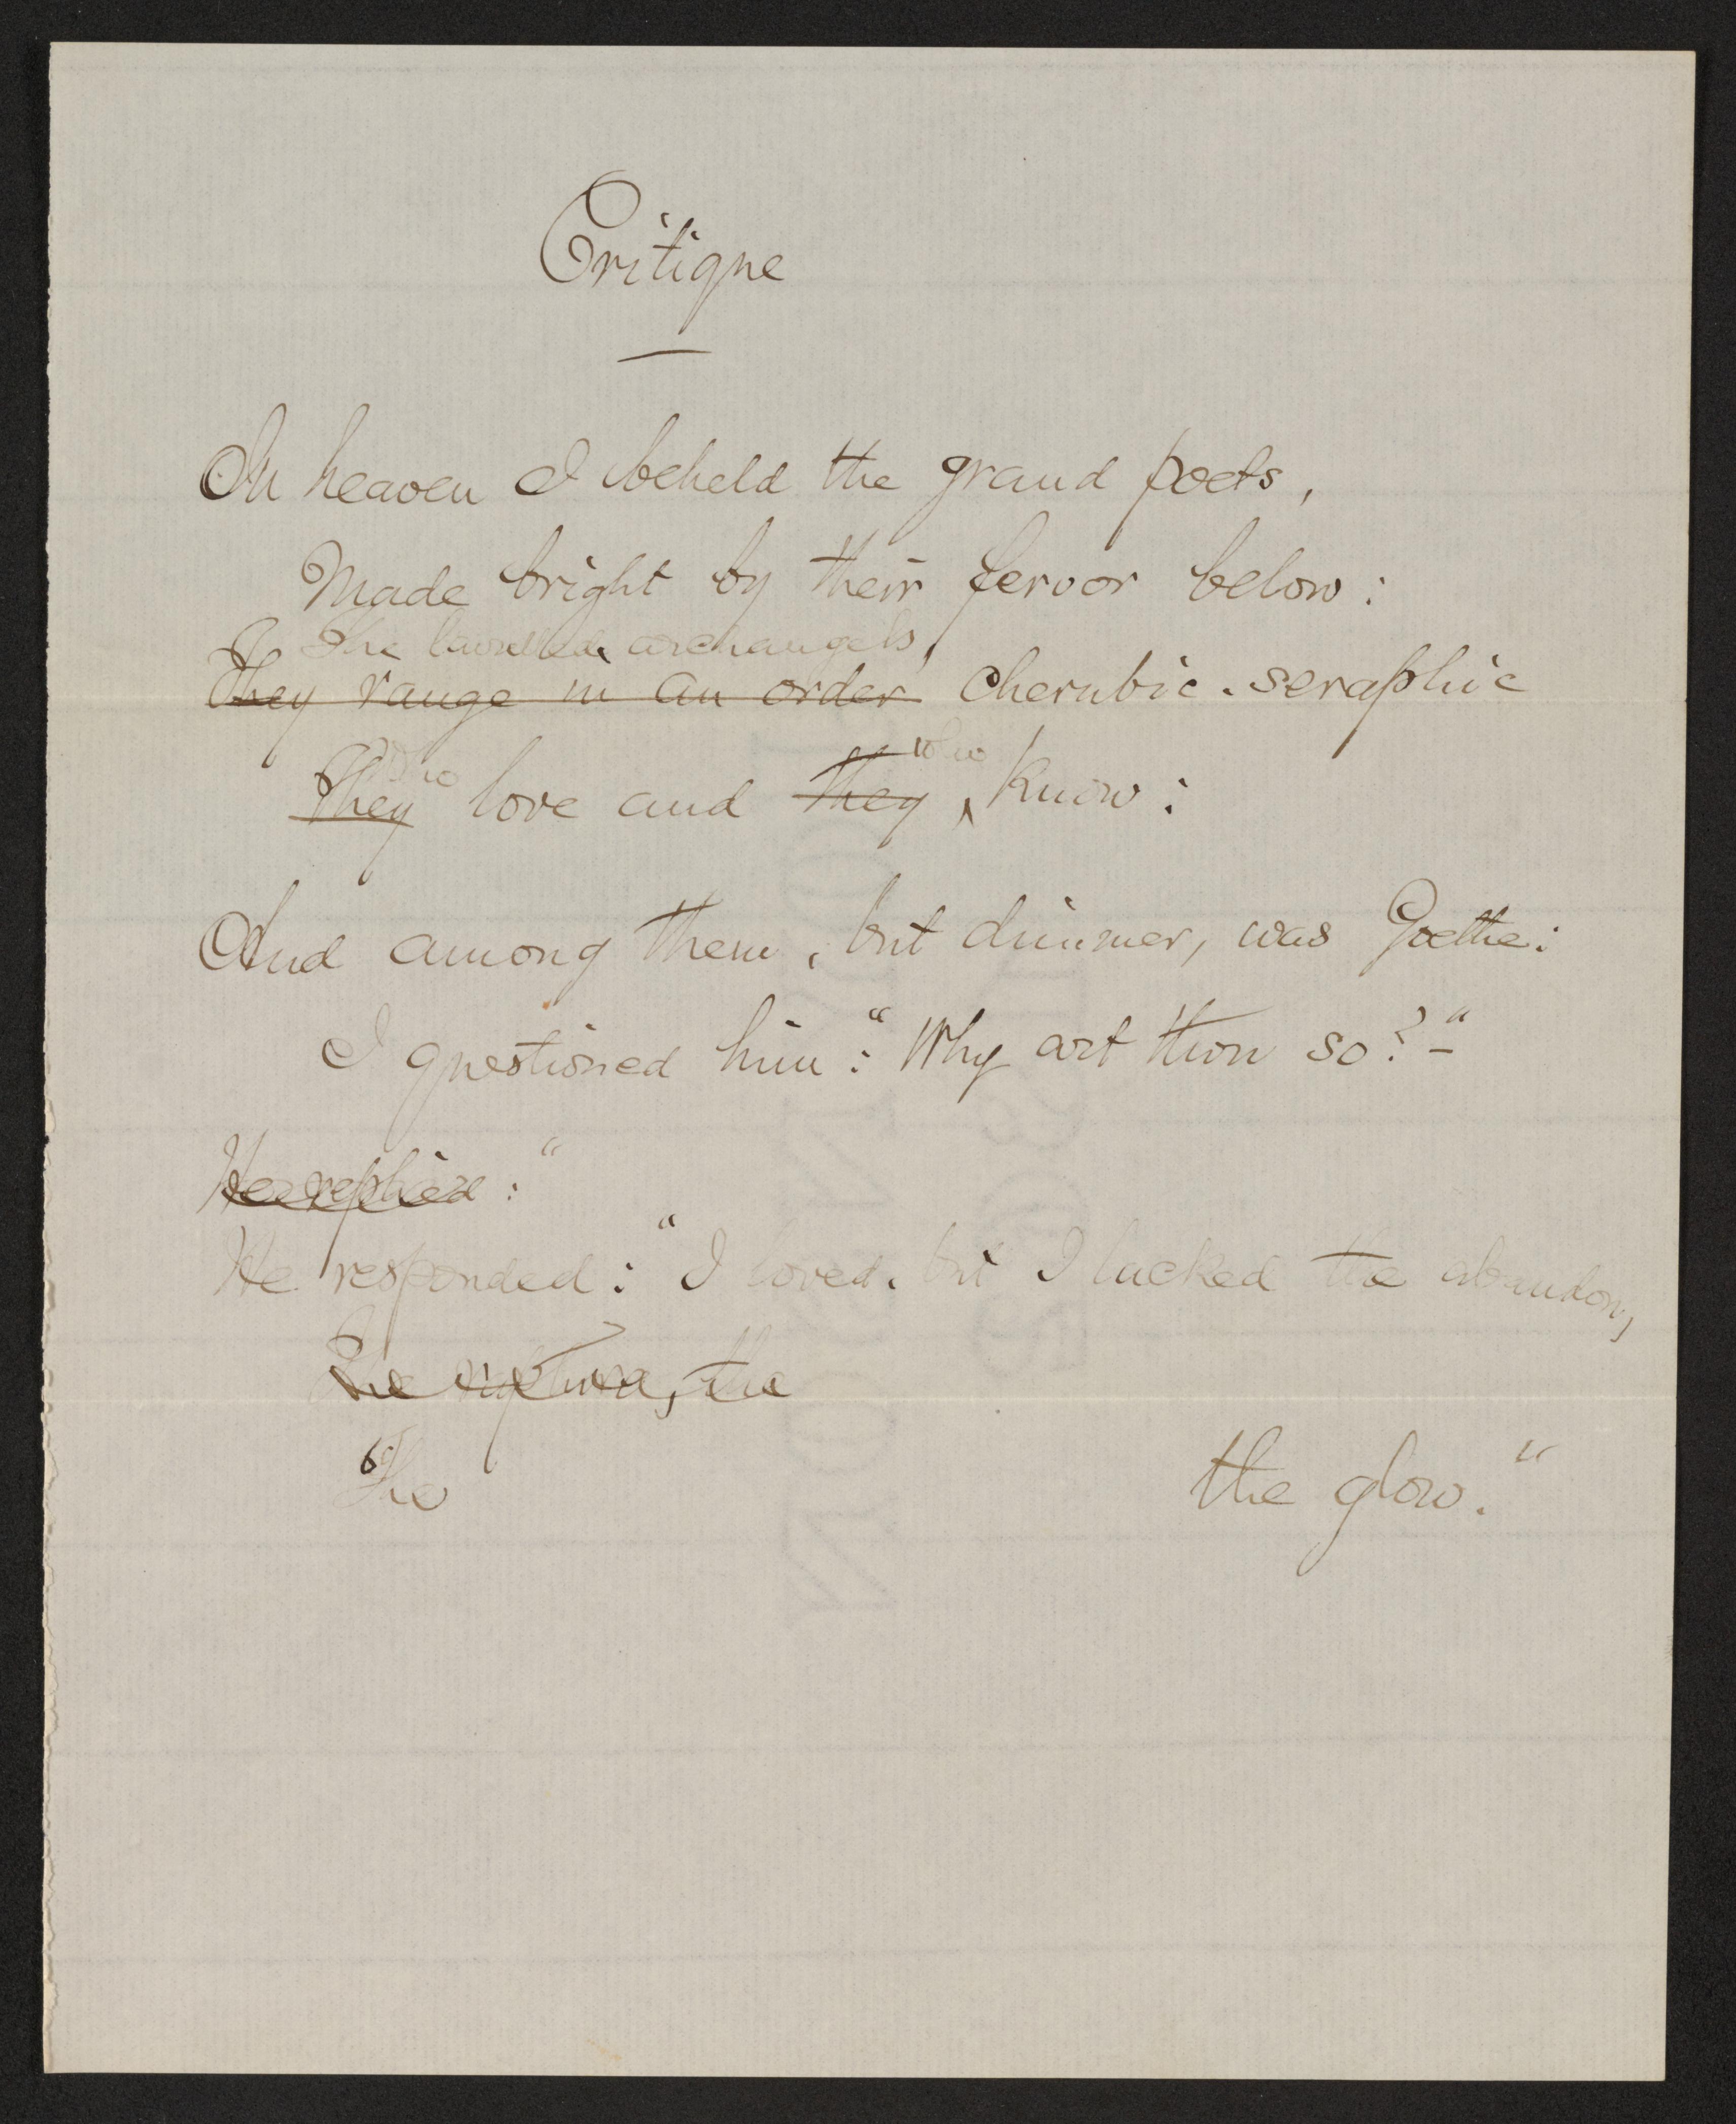 Critique
In heaven I beheld the grand poets,
Made bright by their fervor below:
The laurelled archangels,
They range in an order cherubic-seraphic
Who who
They love and they ^ know:
And among them, but dimmer, was Goethe:
I questioned him: "Why art thou so?-"
He replied: "
He responded: "I loved, but I lacked the abandon,
The rapture, the
The the glow."